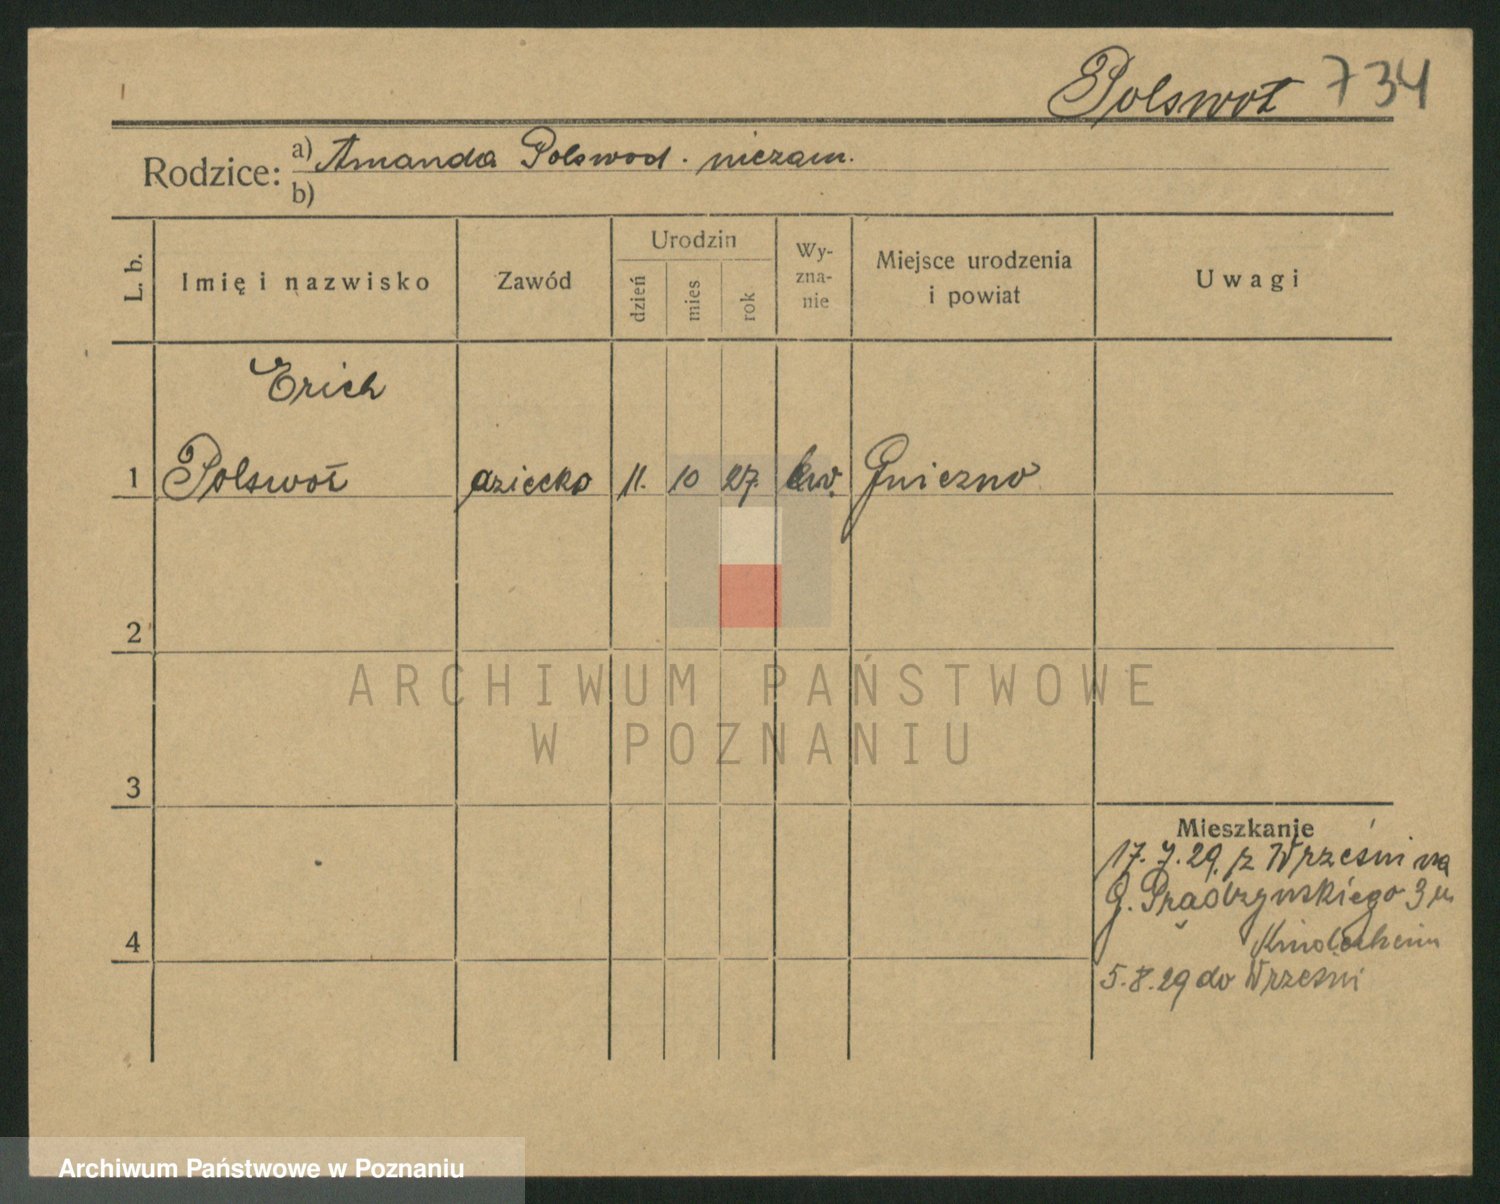 Polswot 734
Rodzice: a) Amanda Polswod. niezam.
b)
L. b.
Imię i nazwisko
Zawód
Urodzin
dzień
mies
rok
Wy-
zna-
nie
Miejsce urodzenia
i powiat
Uwagi
Erich
1 Polswot dziecko 11. 10 27. ew. Gniezno
2
ARCHIWUM PAŃSTWOWE
W POZNANIU
3
Mieszkanie
17.7.29. z Wrześni na
G. Prądzyńskiego 3 m
Kinderheim
4
5.8.29 do Wrześni
Archiwum Państwowe w Poznaniu